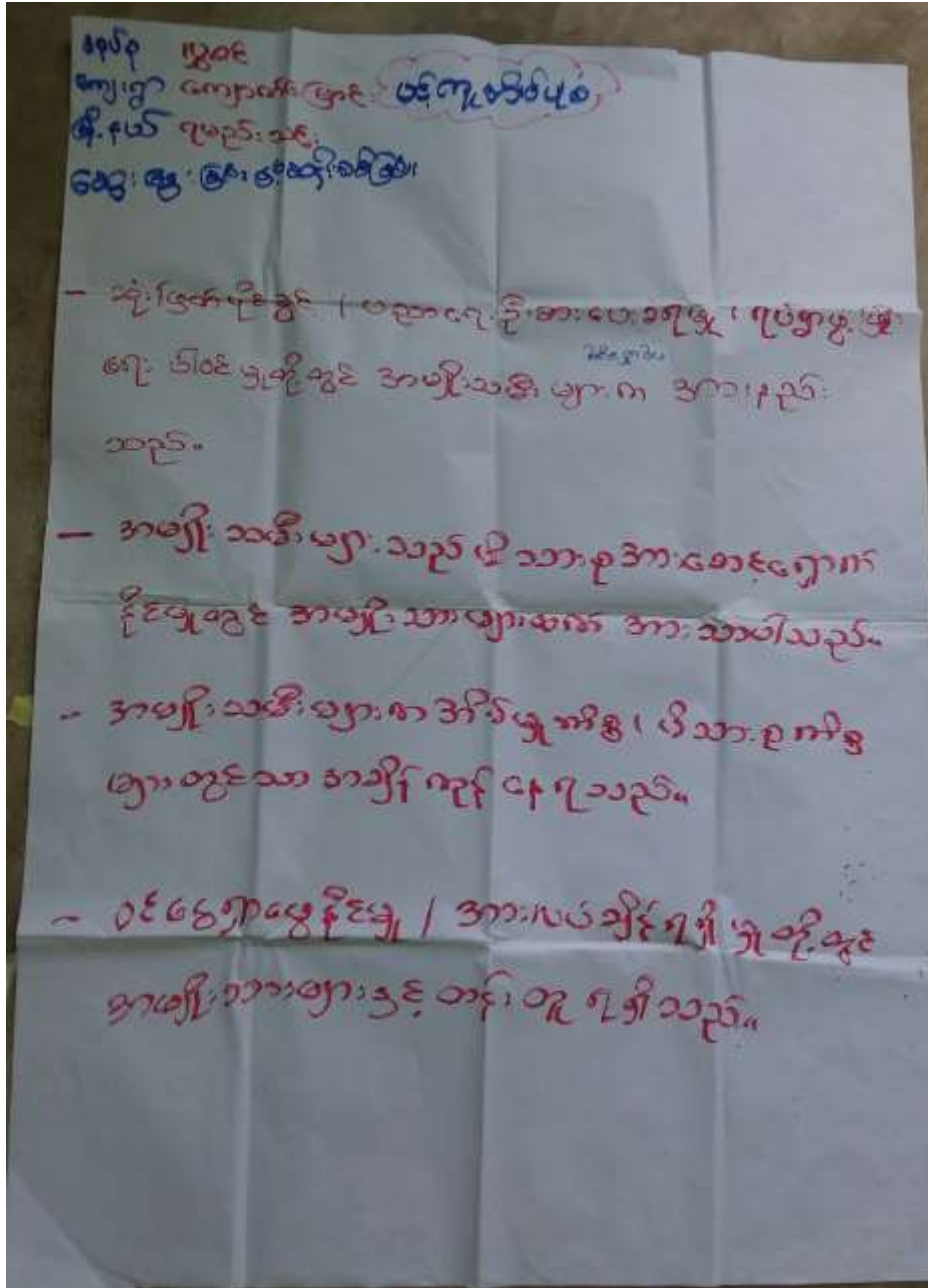 ရပ်စု လွှဝင်
ကျေးရွာ ကျောက်မြောင်း
မြို့နယ် ရမည်းသင်း
ဆွေးနွေးခြင်း နှင့်ဆန်းစစ်ခြင်း
- ဆုံးဖြတ်ပိုင်ခွင့် / ပညာရေး ဦးစားပေးခံရမှု / ရပ်ရွာဖွံ့ဖြိုး
ရေး ပါဝင်မှုတို့တွင် အမျိုးသမီးများက အားနည်း
သည်။
- အမျိုးသမီးများသည် မိသားစုအားစောင့်ရှောက်
နိုင်မှုတွင် အမျိုးသားများထက် အားသာပါသည်။
- အမျိုးသမီးများက အိမ်မှုကိစ္စ / မိသားစုကိစ္စ
များတွင်သာ အချိန်ကုန်နေရသည်။
- ဝင်ငွေရှာဖွေနိုင်မှု / အားလပ်ချိန်ရရှိမှုတို့တွင်
အမျိုးသားများနှင့် တန်းတူ ရရှိသည်။